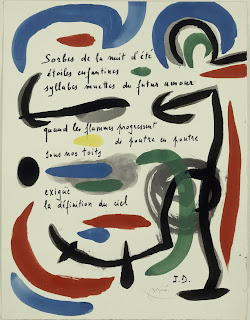 Sorbes de la nuit d'été
étoiles enfantines
syllabes muettes du futur amour
quand les flammes progressent
de poutre en poutre
sous nos toits
exigue
la définition du ciel
J.D.
Miró